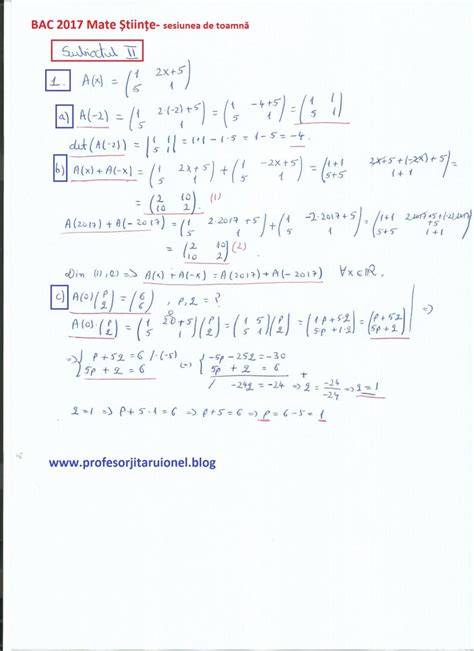 BAC 2017 Mate Științe- sesiunea de toamnă
Subiectul II
1. A(x) = (1 2x+5
5 1)
a) A(-2) = (1 2·(-2)+5
5 1) = (1 -4+5
5 1) = (1 1
5 1)
det(A(-2)) = |1 1
5 1| = 1·1 - 1·5 = 1-5 = -4.
b) A(x)+A(-x) = (1 2x+5
5 1) + (1 -2x+5
5 1) = (1+1 2x+5+(-2x)+5
5+5 1+1) =
= (2 10
10 2). (1)
A(2017)+A(-2017) = (1 2·2017+5
5 1) + (1 -2·2017+5
5 1) = (1+1 2·2017+5+(-2)·2017+5
5+5 1+1)
= (2 10
10 2) (2)
Din (1),(2) => A(x)+A(-x) = A(2017)+A(-2017) ∀x∈ℝ.
c) A(0)(p
2) = (6
6) , p,2 = ?
A(0)·(p
2) = (1 2·0+5
5 1)(p
2) = (1 5
5 1)(p
2) = (1·p+5·2
5p+1·2) = (p+52
5p+2) =>
=> {p+52=6 /·(-5)
5p+2=6 => {-5p-252=-30
5p+2=6 +
/ -242=-24 => 2 = -24/-24 => 2=1
2=1 => p+5·1=6 => p+5=6 => p=6-5=1
www.profesorjitaruionel.blog